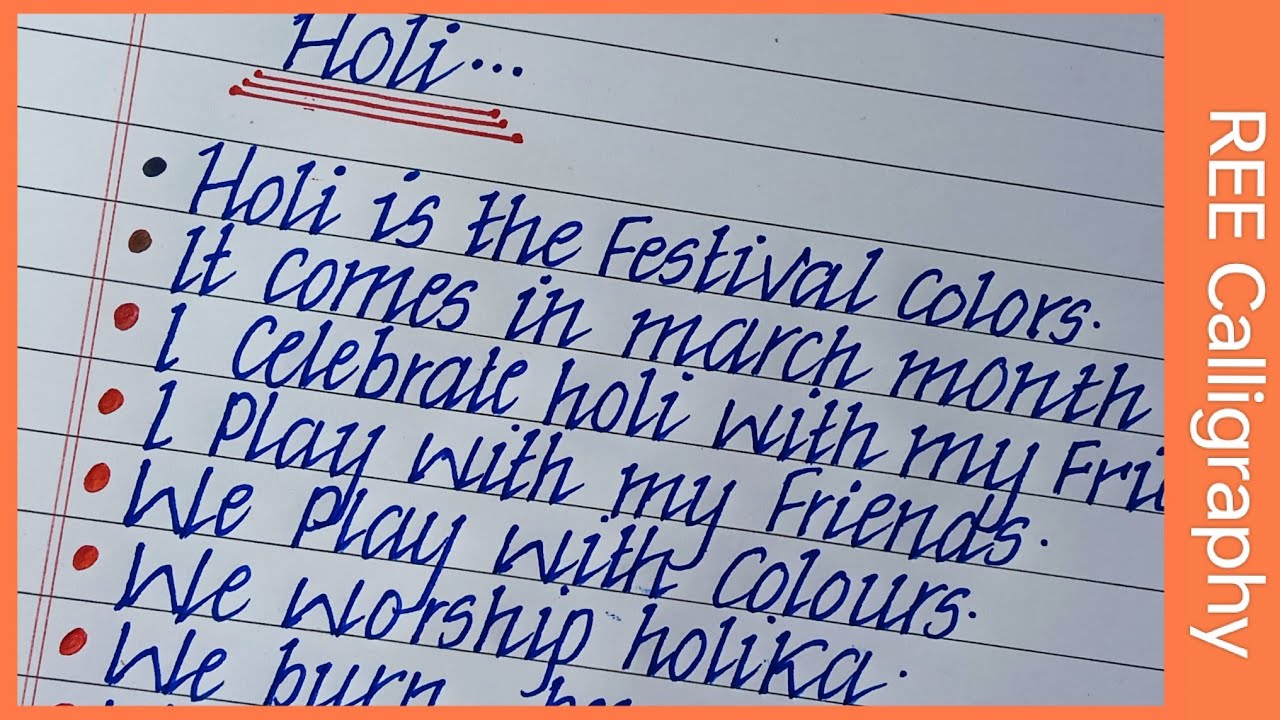 Holi...
Holi is the Festival Colors.
It comes in march month
I celebrate holi with my Fri
I play with my Friends.
We play with Colours.
We worship holika.
We burn
REE Calligraphy